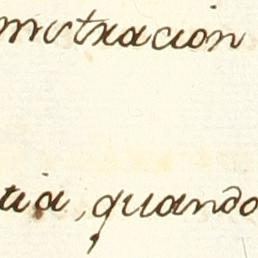 mistracion
tia, quando